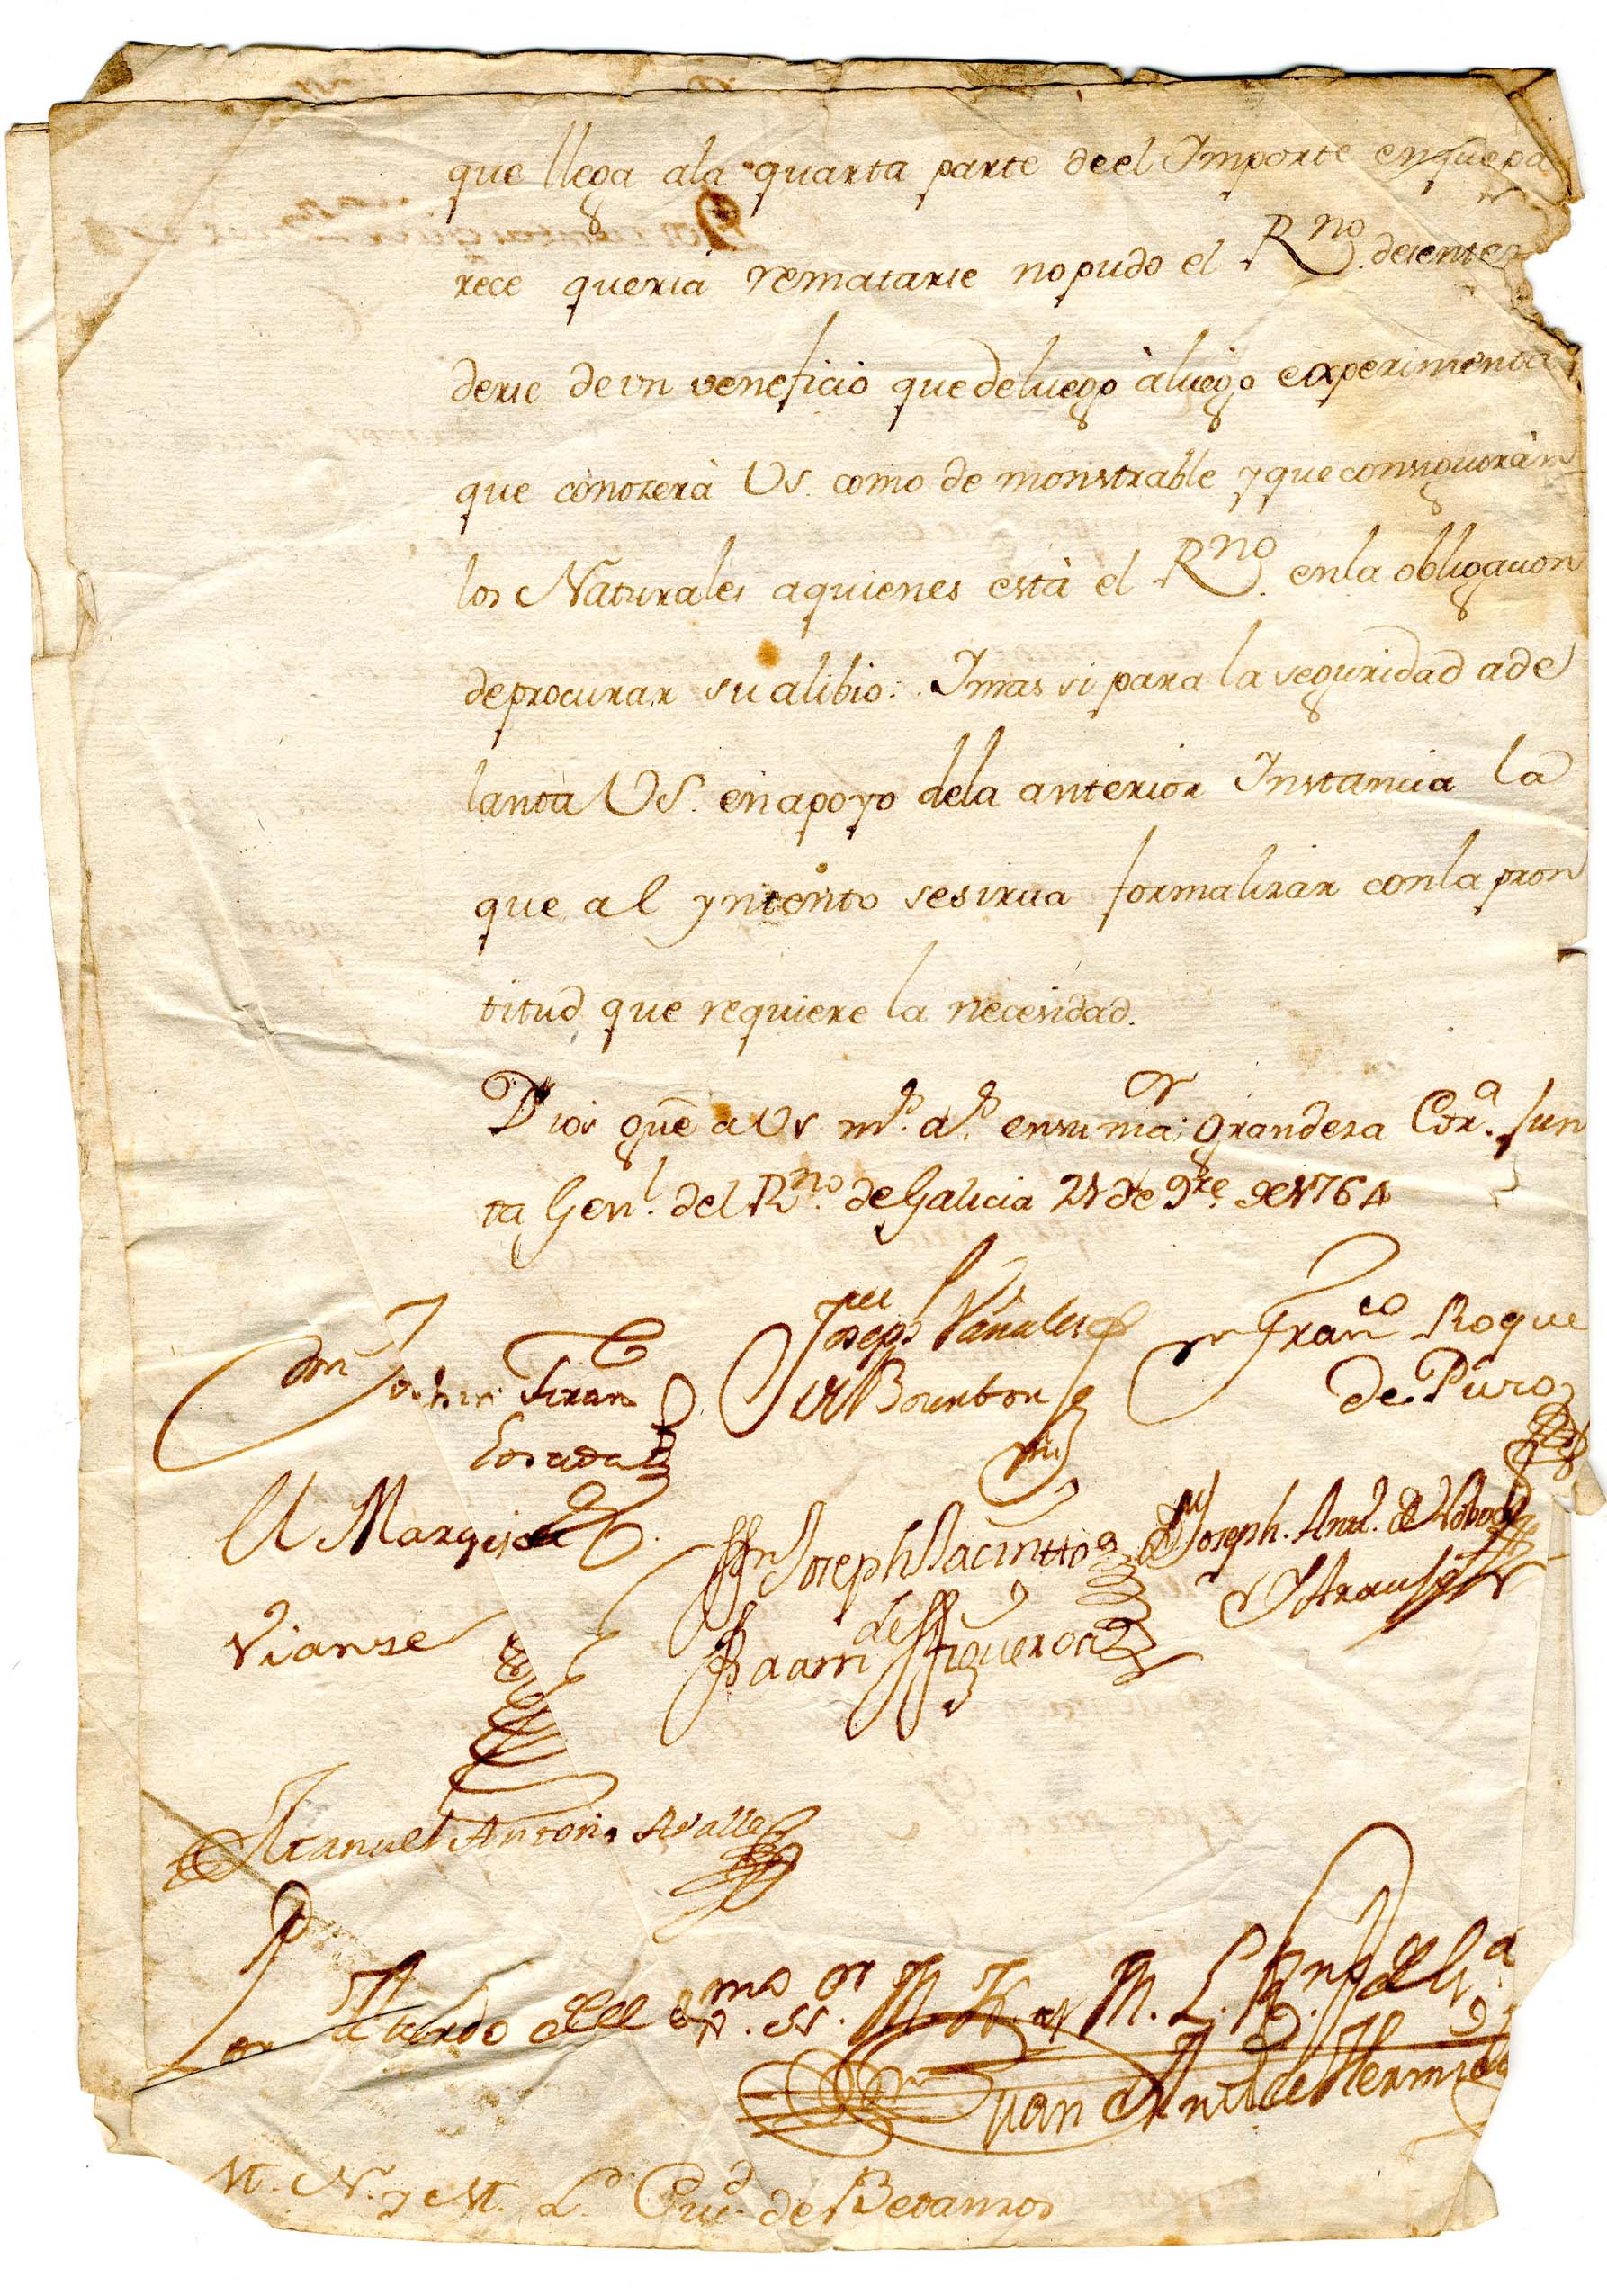 que llega ala quarta parte deel Importe enque pa
rece queria rematarse no pudo el Rno. desenten
derse de vn veneficio que deluego àluego experimenta
que conozerà Vs. como de monstrable y que conseguiràn
los Naturales aquienes està el Rno. enla obligacion
de procurar su alibio: Imas si para la seguridad ade
lanta VS. en apoyo dela anterior Instancia la
que al yntento sesirua formalizar conla pron
titud que requiere la necesidad.
Dios gue. a Vs ms. as. ensu mai.or grandeza Cor.a Jun
ta Gen.l del Rno. de Galicia 21 de 9re. de 1764
Dn Fran
Losada
Joseph
de Bourbon
Dn Franco Roque
de Puzo
El Marques de
Vianze
Dn Joseph Jacintto
Baam.de Figueroa
Dn Joseph. Antt. de
Manuel Antonio
Por Acuerdo del Exmo. Sr. M. N. y M. L. Rno. de Ga.
Juan Antt. de Hermida
M. N. y M. L. Ciud. de Betanzos